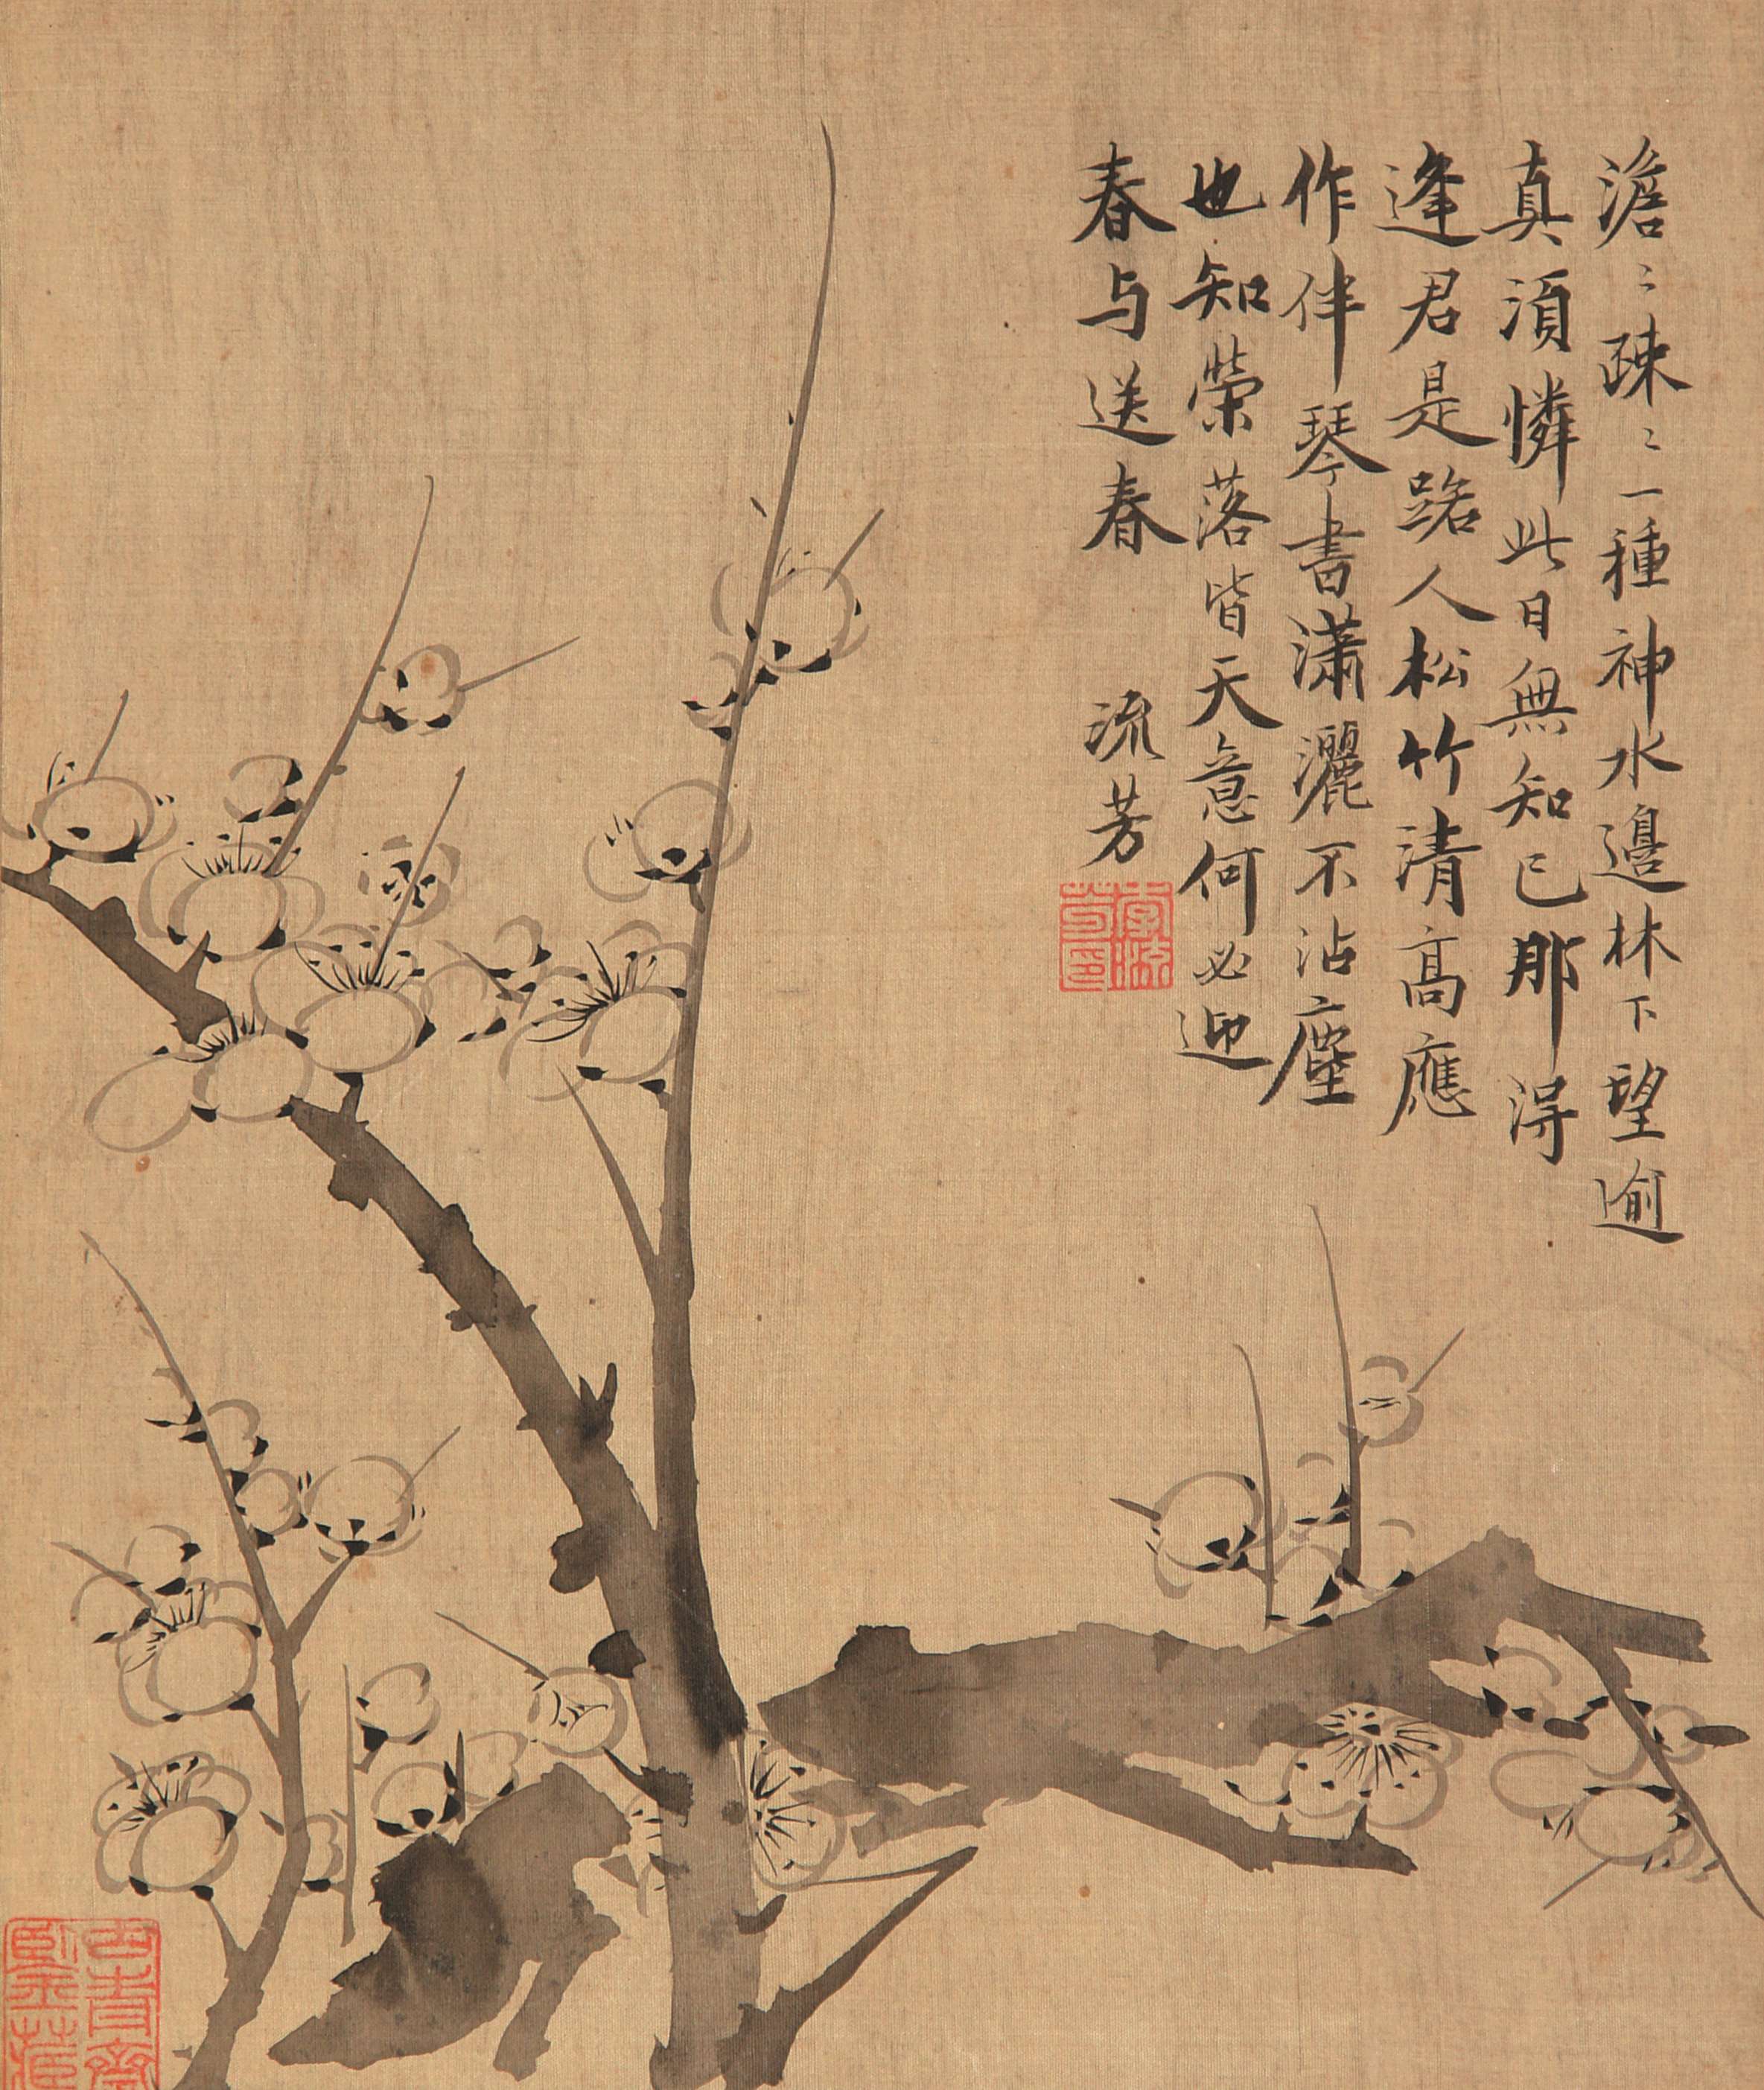 澹〻疎〻一種神水邊林下望逾
真須憐此日無知己那得
逢君是路人松竹清高應
作伴琴書瀟灑不沾塵
也知榮落皆天意何必迎
春与送春
流芳
李流芳印